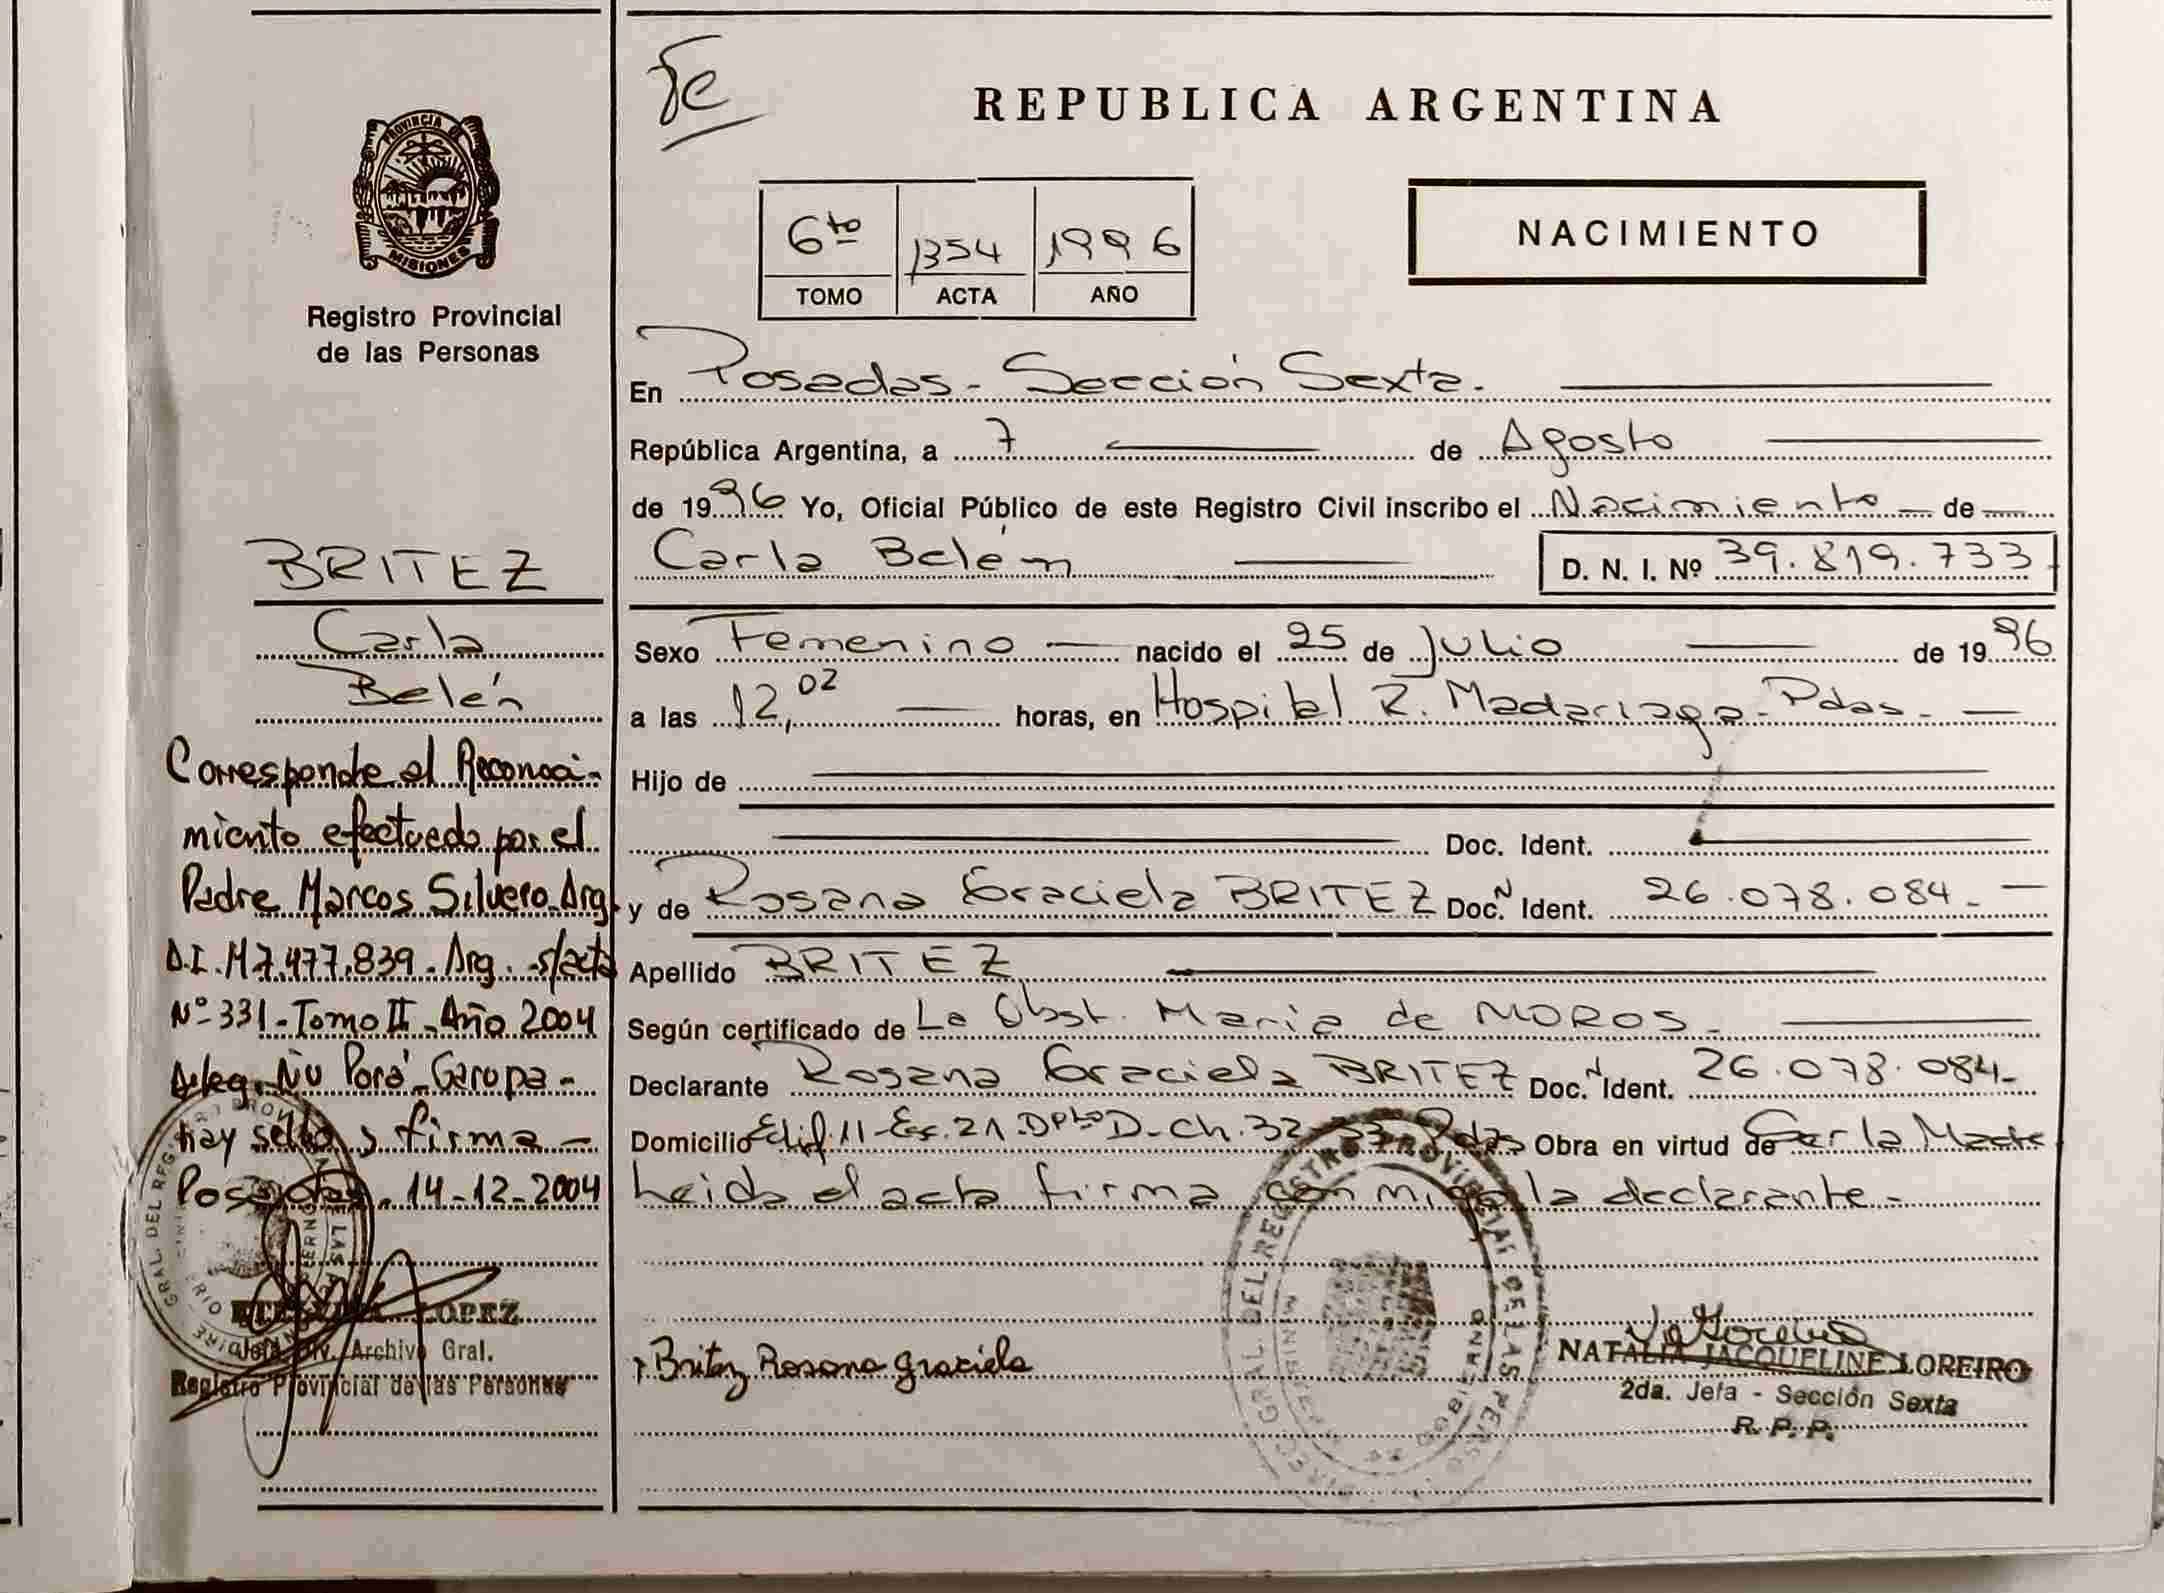 Fe
REPUBLICA ARGENTINA
PROVINCIA DE
MISIONES
Registro Provincial
de las Personas
6to 1354 1996
TOMO ACTA AÑO
NACIMIENTO
En Posadas - Sección Sexta.
República Argentina, a 7 de Agosto
de 1996 Yo, Oficial Público de este Registro Civil inscribo el Nacimiento de
Carla Belém D. N. I. Nº 39.819.733
Sexo Femenino nacido el 25 de Julio de 1996
a las 12,02 horas, en Hospital R. Madariaga - Pdas.
Hijo de
Doc. Ident.
y de Rosana Graciela BRITEZ Doc. N Ident. 26.078.084
Apellido BRITEZ
Según certificado de La Obst. Maria de MOROS
Declarante Rosana Graciela BRITEZ Doc. N Ident. 26.078.084
Domicilio Edif. 11 - Es. 21 Dpto D - Ch. 32-33 Pdas Obra en virtud de
Leida el acta firma con migo la declarante
Britez Rosana Graciela
NATALIA JACQUELINE LOREIRO
2da. Jefa - Sección Sexta
R. P. P.
BRITEZ
Carla
Belén
Corresponde al Reconoci-
miento efectuado por el
Padre Marcos Silvero Arg.
D.I. M 7.477.839 - Arg. s/acta
Nº 331 - Tomo II - Año 2004
Deleg. Ñu Porá - Garupa -
hay sello y firma -
Posadas, 14-12-2004
LOPEZ
Jefa Div. Archivo Gral.
Registro Provincial de las Personas